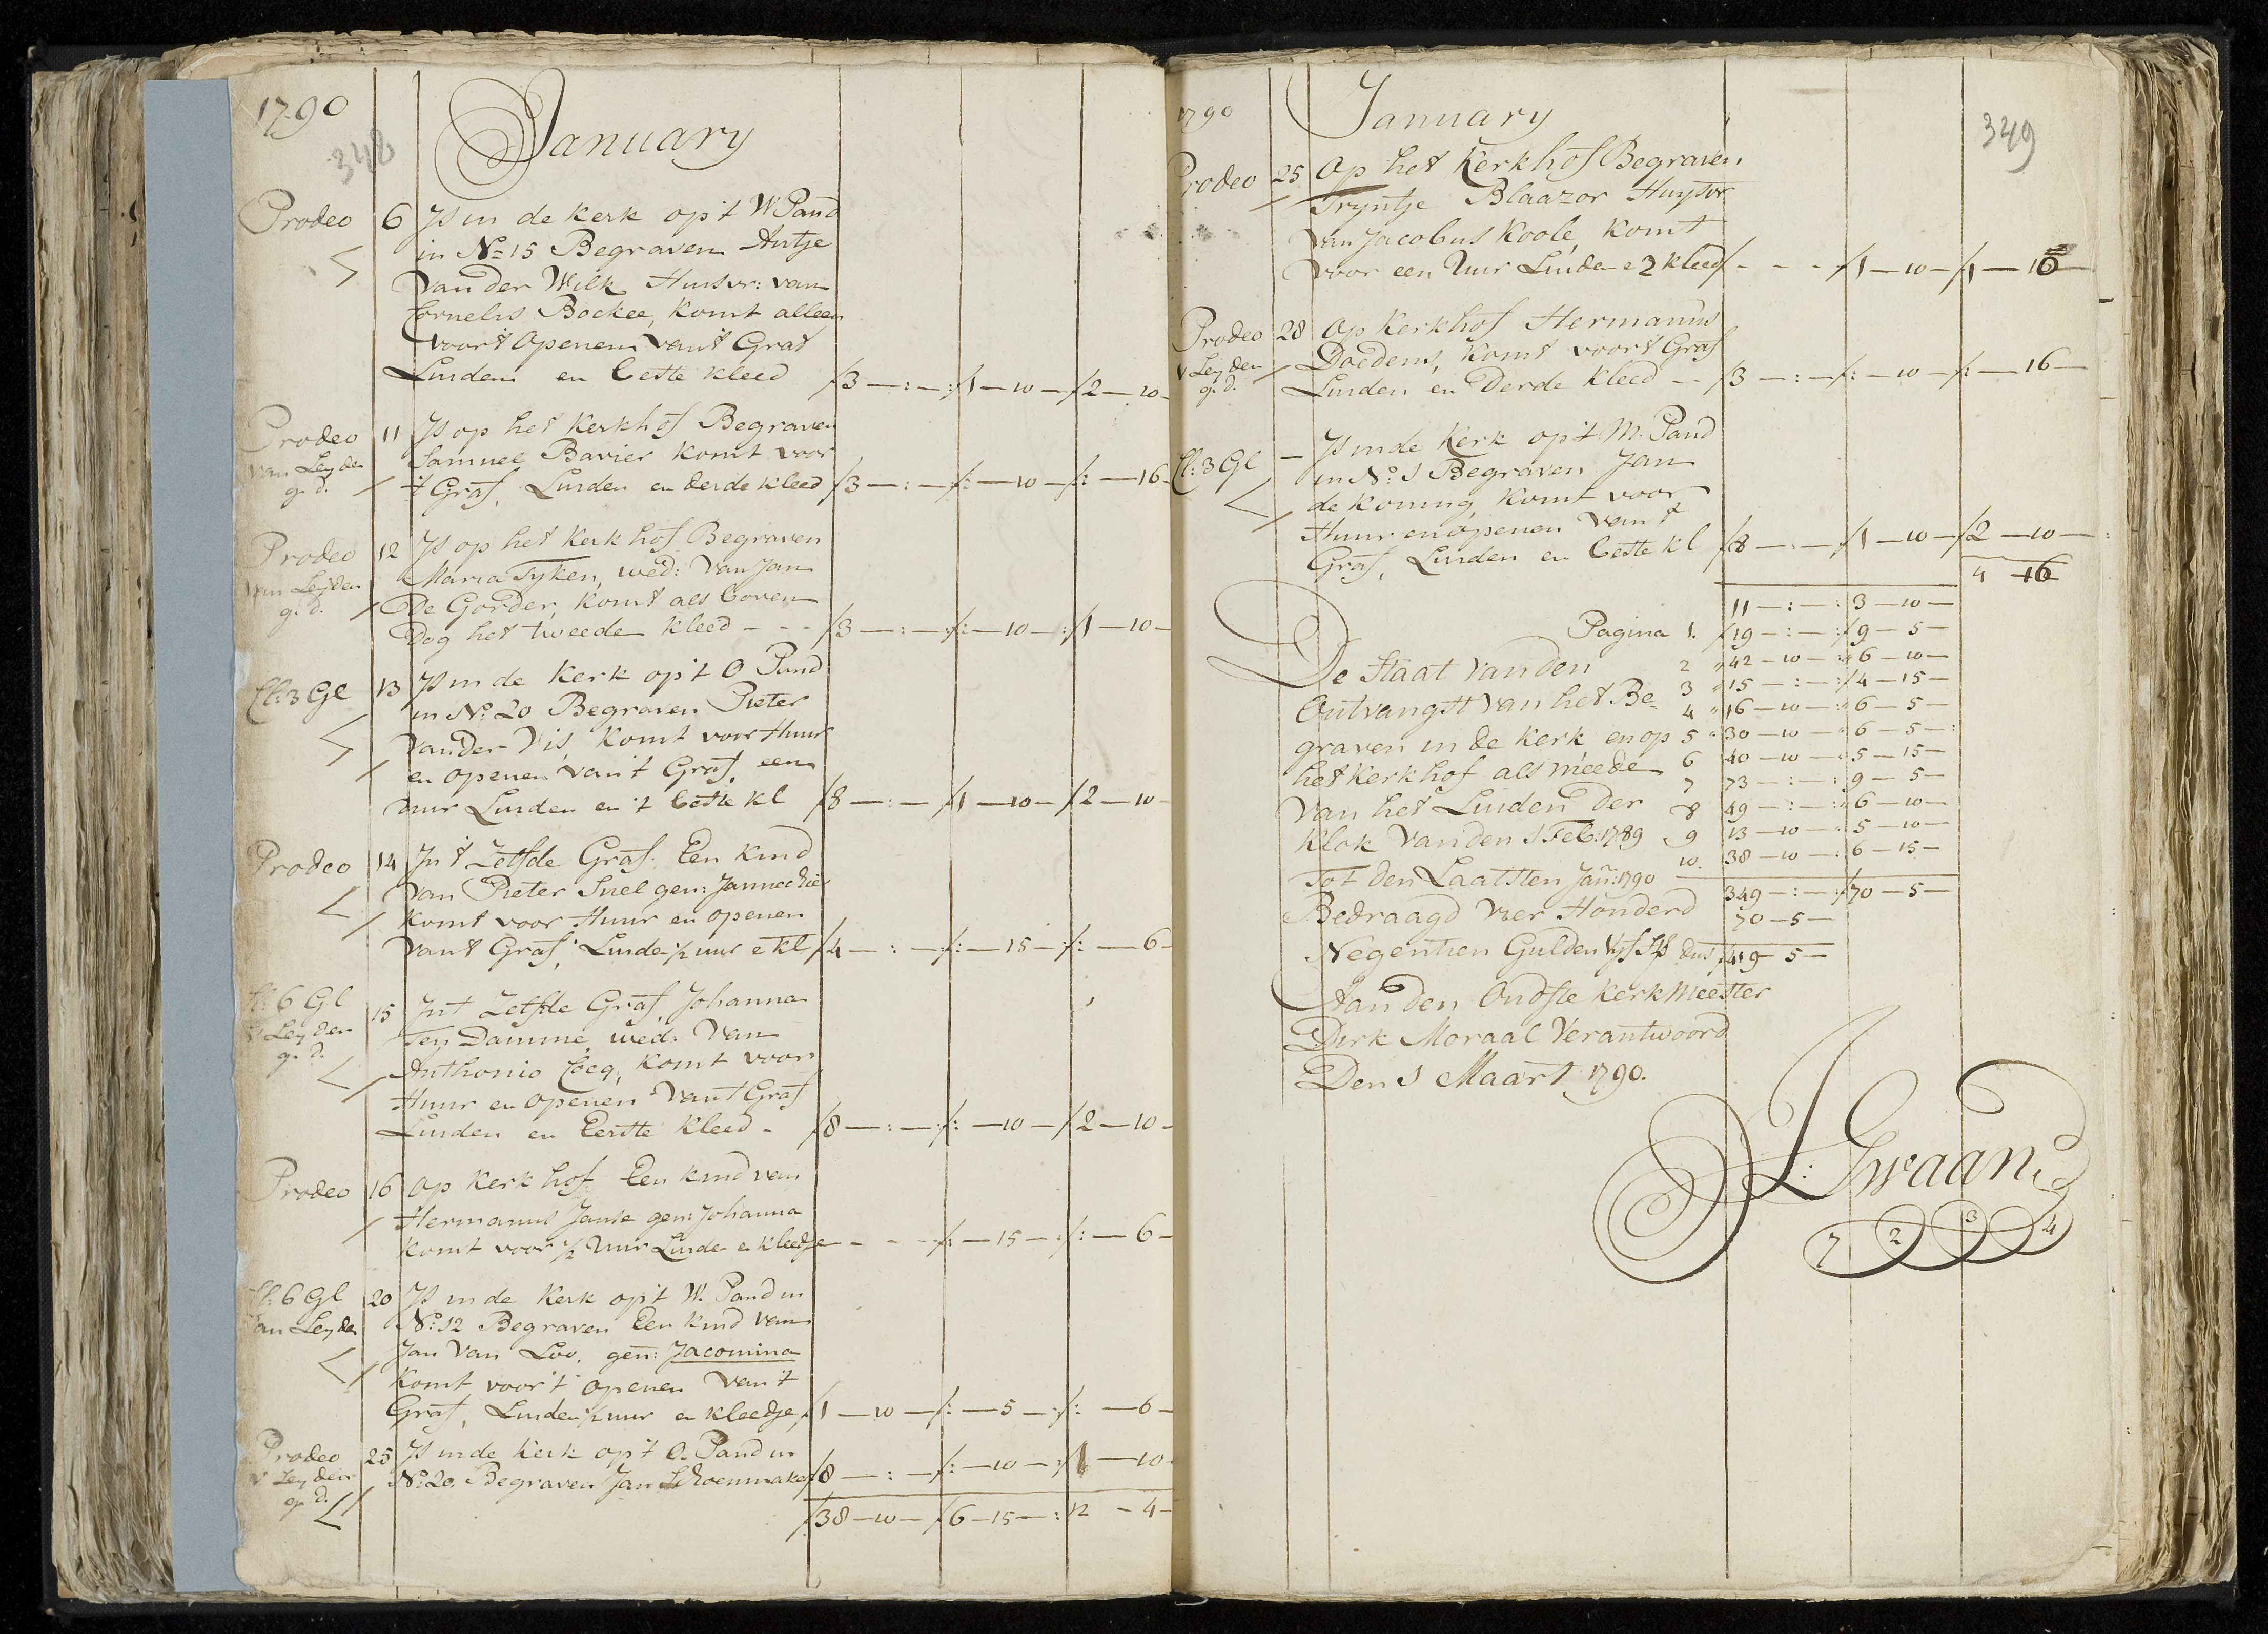 1790
348
January
Prodeo 6 Is in de kerk op 't W Pand
in No 15 Begraven Antje
Vander Wilk Huisvr: van
Cornelis Bockee, komt alleen
voor t Openen van t Graf
Luiden en beste kleed f3 —:— f1 — 10 — f2 — 10 —
Prodeo 11 Is op het kerkhof Begraven
Van Leyden Samuel Bavier komt voor
g. d. t Graf, Luiden en derde kleed f3 —:— f: — 10 — f: — 16 —
Prodeo 12 Is op het kerkhof Begraven
Van Leyden Maria Tyken, wed: van Jan
g. d. De Gorder, komt als boven
Dog het tweede kleed - - - f3 —:— f: — 10 — f1 — 10 —
Cl: 3 Gl 13 Is in de kerk op 't O Pand
in No 20 Begraven Pieter
vander Vis, komt voor Huur
en openen van t Graf, een
uur Luiden en 't beste kl f8 —:— f1 — 10 — f2 — 10 —
Prodeo 14 In t Zelfde Graf. Een kind
van Pieter Snel gen: Jannechie
komt voor Huur en openen
vant Graf, Luide ½ uur e kl f4 —:— f: — 15 — f: — 6 —
Cl: 6 Gl 15 Int Zelfde Graf, Johanna
v Leyden Ten Damme, wed: van
g. d. Anthonio Cocq, komt voor
Huur en openen vant Graf
Luiden en Eerste kleed - f8 —:— f: — 10 — f2 — 10 —
Prodeo 16 op kerkhof Een kind van
Hermanus Janse gen: Johanna
komt voor ½ Uur Luide e kleedje - - - f: — 15 — f: — 6 —
Cl: 6 Gl 20 Is in de kerk op 't W. Pand in
Van Leyden No 12 Begraven Een kind van
Jan Van Loo, gen: Jacomina
komt voor 't openen van 't
Graf, Luiden ½ uur en kleedje, f1 — 10 — f: — 5 — f: — 6 —
Prodeo 25 Is in de kerk op 't O. Pand in
v Leyden No 20. Begraven Jan Schoenmaker f8 —:— f: — 10 — f1 — 10 —
g. d.
f38 — 10 — f6 — 15 —: 12 — 4 —
1790
January
349
Prodeo 25 Op het Kerkhof Begraven
Tryntje Blaazor Huysvr
van Jacobus Koole, komt
voor een Uur Luide e 2 kleed f - - - f1 — 10 — f1 — 10 —
Prodeo 28 op Kerkhof Hermanus
v Leyden Doedens, komt voor t Graf
g. d. Luiden en Derde kleed - - f3 —:— f: — 10 — f: — 16 —
Cl: 3 Gl — Is in de kerk op 't M. Pand
in No 1 Begraven Jan
de Koning, komt voor
Huur en openen van t
Graf, Luiden en beste kl f8 —:— f1 — 10 — f2 — 10 —
4 16
11 —:—: 3 — 10 —
Pagina 1. f19 —:—: f9 — 5 —
De Staat vanden 2 42 — 10 — 6 — 10 —
3 15 —:—: f4 — 15 —
Ontvangst van het Be- 4 16 — 10 — 6 — 5 —
graven in de kerk en op 5 30 — 10 — 6 — 5 —
het Kerkhof als meede 6 40 — 10 — 5 — 15 —
7 73 —:—: 9 — 5 —
van het Luiden der 8 49 —:—: 6 — 10 —
Klok vanden 1 Feb: 1789 9 13 — 10 — 5 — 10 —
10. 38 — 10 —: 6 — 15 —
Tot den Laatsten Jan: 1790
349 —:—: f70 — 5 —
Bedraagd vier Honderd 70 — 5 —
Negentien Gulden Vyf St dus f419 — 5 —
Aan den Oudste Kerk Meester
Dirk Moraal Verantwoord
Den 1 Maart 1790.
L: Swaan
1 2 3 4